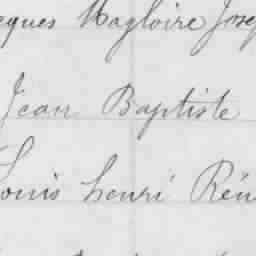 cques Magloire Josep
Jean Baptiste
Louis henri Rén